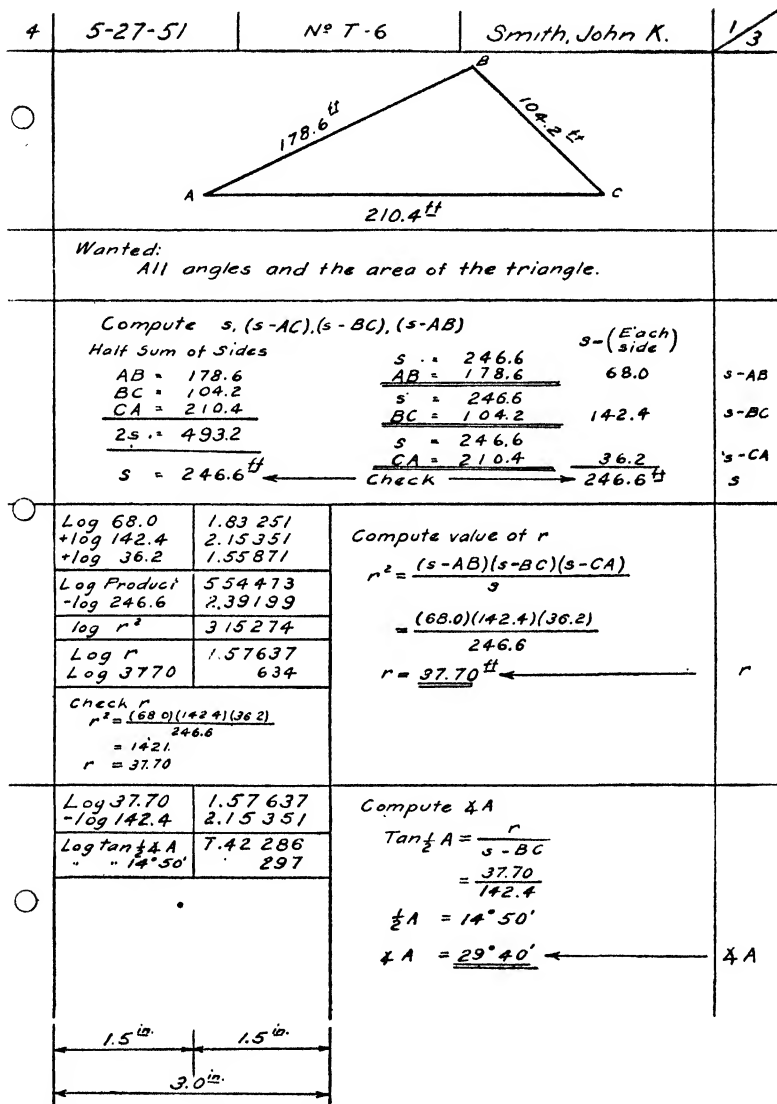 4 5-27-51 Nº T-6 Smith, John K. 1/3
B
178.6 ft 104.2 ft
A C
210.4 ft
Wanted:
All angles and the area of the triangle.
Compute s, (s-AC), (s-BC), (s-AB)
Half Sum of Sides
AB = 178.6
BC = 104.2
CA = 210.4
2s = 493.2
s = 246.6 ft
s = 246.6 s-(Each side)
AB = 178.6 68.0 s-AB
s = 246.6
BC = 104.2 142.4 s-BC
s = 246.6
CA = 210.4 36.2 s-CA
Check 246.6 ft s
Log 68.0 1.83 251
+log 142.4 2.15351
+log 36.2 1.55871
Log Product 554473
-log 246.6 2.39199
log r² 315274
Log r 1.57637
Log 3770 634
Check r
r² = (68 0)(142 4)(36 2)
246.6
= 1421.
r = 37.70
Compute value of r
r² = (s-AB)(s-BC)(s-CA)
s
= (68.0)(142.4)(36.2)
246.6
r = 37.70 ft r
Log 37.70 1.57 637
-log 142.4 2.15 351
Log tan ½ ∡ A 1̅.42 286
" " 14°50' 297
Compute ∡ A
Tan ½ A = r
s - BC
= 37.70
142.4
½ A = 14° 50'
∡ A = 29° 40' ∡ A
1.5 in. 1.5 in.
3.0 in.